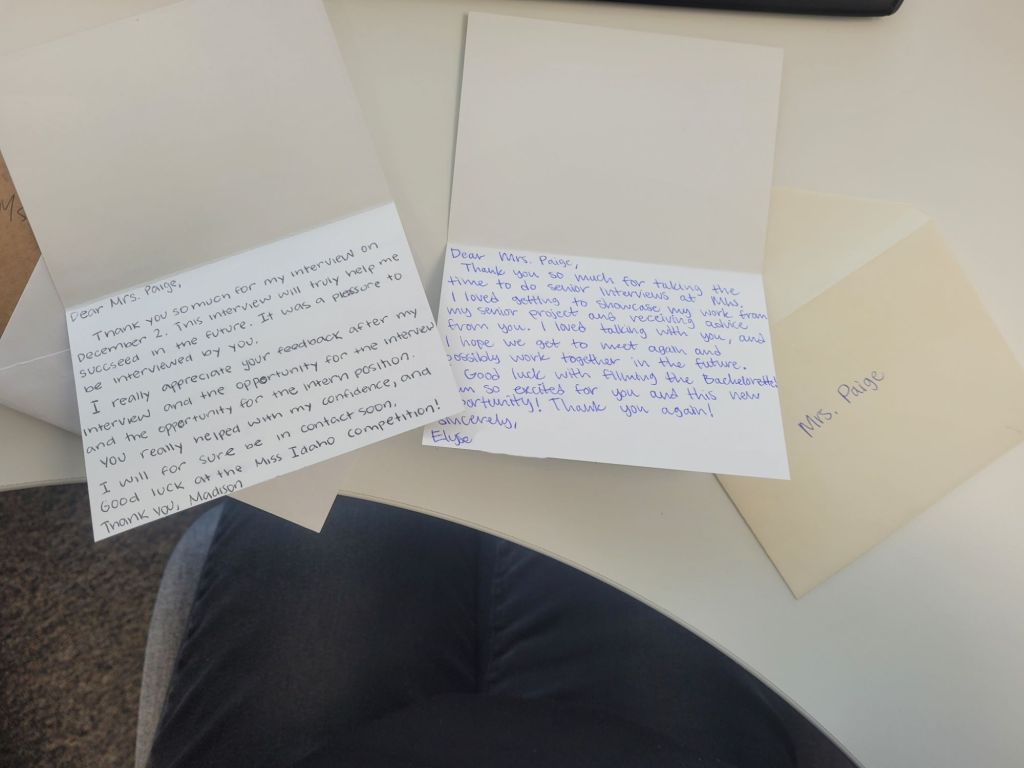 Ms
Dear Mrs. Paige,
Thank you so much for my interview on
December 2. This interview will truly help me
succseed in the future. It was a pleasure to
be interviewed by you.
I really appreciate your feedback after my
interview and the opportunity for the interview
and the opportunity for the intern position.
You really helped with my confidence, and
I will for sure be in contact soon.
Good luck at the Miss Idaho competition!
Thank you, Madison
Dear Mrs. Paige,
Thank you so much for taking the
time to do senior interviews at MW.
I loved getting to showcase my work from
my senior project and receiving advice
from you. I loved talking with you, and
I hope we get to meet again and
possibly work together in the future.
Good luck with filming the Bachelorette!
so excited for you and this new
opportunity! Thank you again!
Sincerely,
Elyse
Mrs. Paige